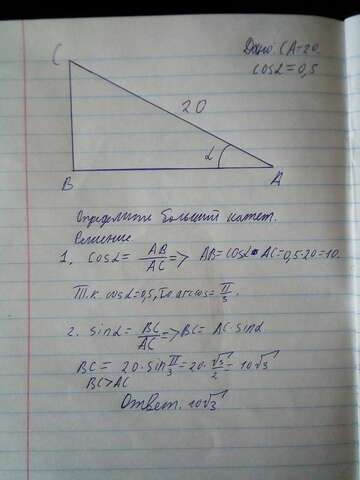 Дано: CA=20
cosα=0,5
C
20
α
B
A
Определите больший катет.
Решение
1, cosα= AB/AC => AB=cosα•AC=0,5·20=10.
Т.к. cosα=0,5, то arccos= π/3.
2. sinα= BC/AC => BC= AC sinα
BC= 20·sin π/3 =20· √3/2 = 10√3
BC>AC
Ответ: 10√3